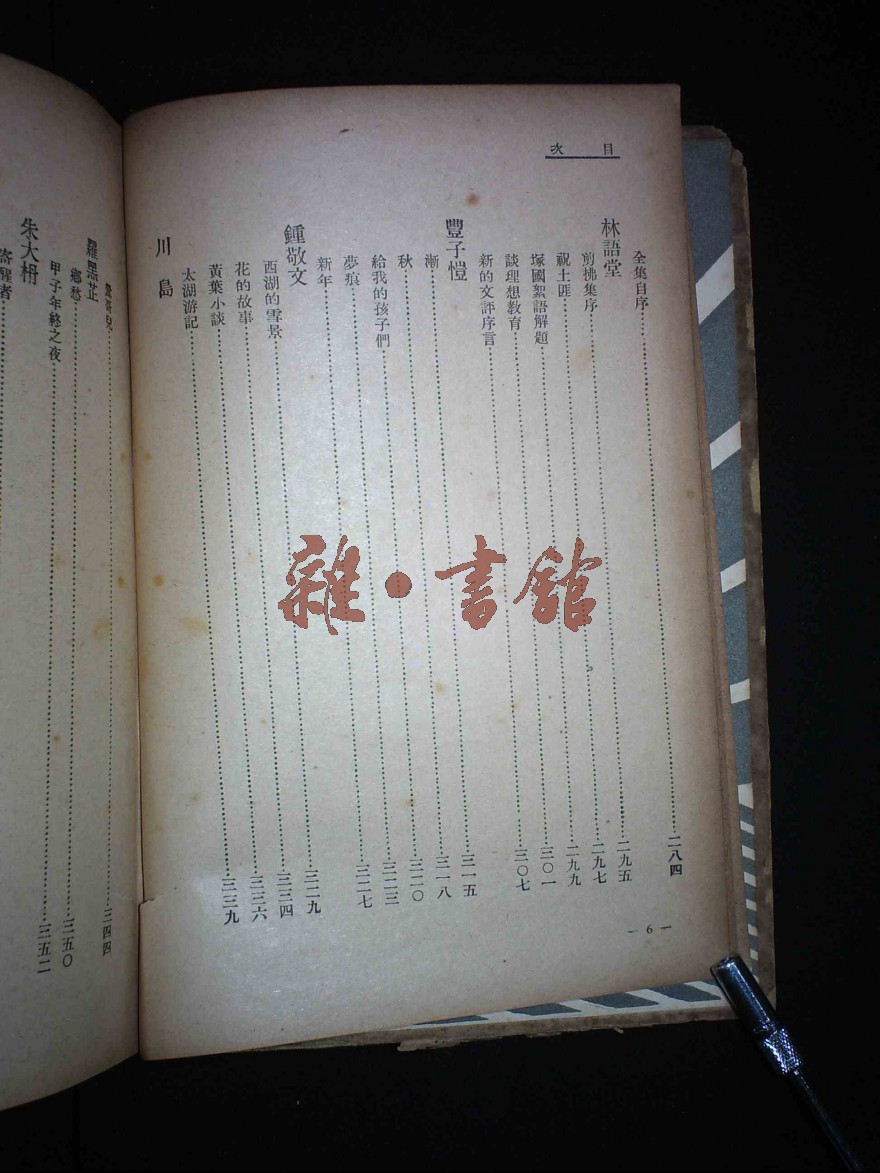 目次
全集自序……二八四
林語堂
剪拂集序……二九五
祝土匪……二九七
塚國絮語解題……二九九
談理想教育……三〇一
新的文評序言……三〇七
豐子愷
漸……三一五
秋……三一八
給我的孩子們……三二〇
夢痕……三二三
新年……三二七
鍾敬文
西湖的雪景……三二九
花的故事……三三四
黃葉小談……三三六
太湖游記……三三九
川島
—6—
……三四四
羅黑芷
鄉愁……三五〇
甲子年終之夜……三五二
朱大枬
寄醒者……
雜·書館